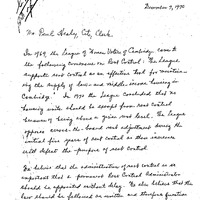 December 7, 1970
Mr. Paul Healy, City Clerk
In 1969, the League of Women Voters of Cambridge came to
the following consensus on Rent Control: The League
supports rent control as an effective tool for maintain-
ing the supply of low and middle income housing in
Cambridge. In 1970 the League concluded that no
housing units should be exempt from rent control
because of being above a given rent level. The League
opposes across-the-board rent adjustment during the
initial five years of rent control as this increase
will defeat the purpose of rent control.
We believe that the administration of rent control is so
important that a permanent Rent Control Administrator
should be appointed without delay. We also believe that the
law should be followed as written and therefore